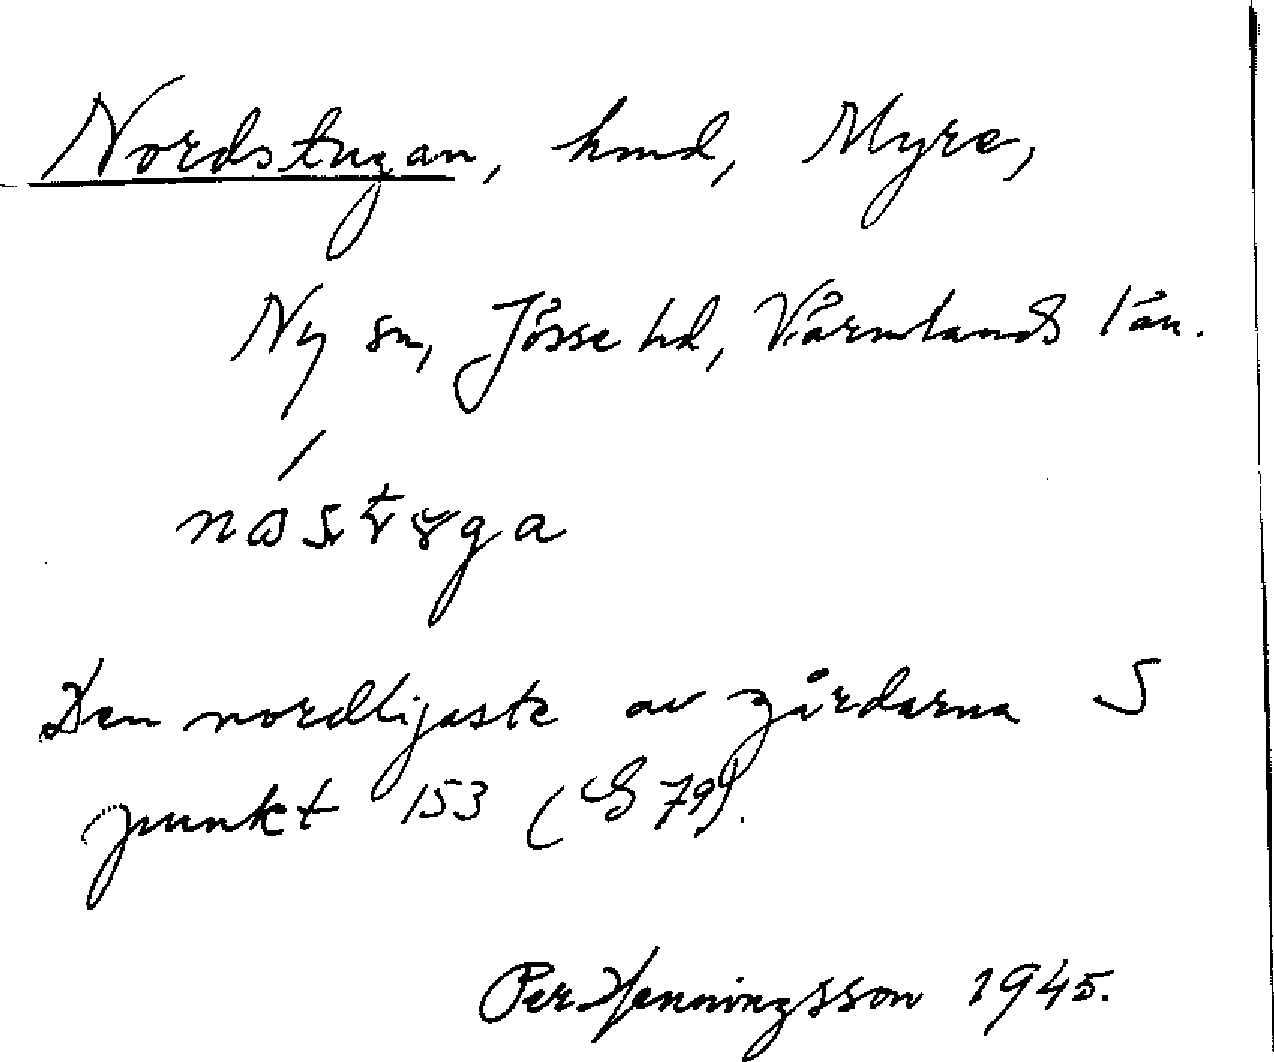 Nordstugan, hmd, Myre,
Ny sn, Jösse hd, Värmlands län.
Den nordligaste av gårdarna S
punkt 153 (S 79).
Per Henningsson 1945.